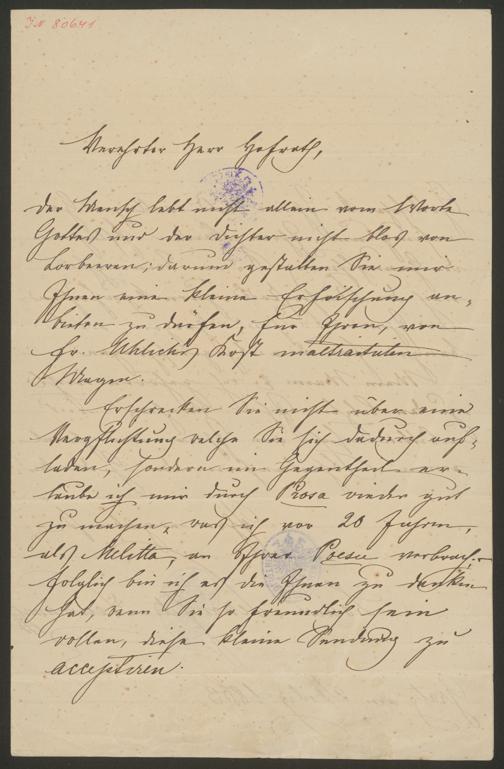 IN 80641
Verehrter Herr Hofrath,
der Mensch lebt nicht allein vom Worte
Gottes und der Dichter nicht blos von
Lorbeeren; darum gestatten Sie mir
Ihnen eine kleine Erfrischung an-
bieten zu dürfen, für Ihren, von
Fr. Uhlichs Kost maltraitirten
Magen.
Erschrecken Sie nicht über eine
Verpflichtung welche Sie sich dadurch auf-
laden, sondern im Gegentheil er-
laube ich mir durch Prosa wieder gut
zu machen, was ich vor 20 Jahren,
als Melitta, an Ihrer Poesie verbrach.
Folglich bin ich es die Ihnen zu danken
hat, wenn Sie so freundlich sein
wollen, diese kleine Sendung zu
acceptiren.